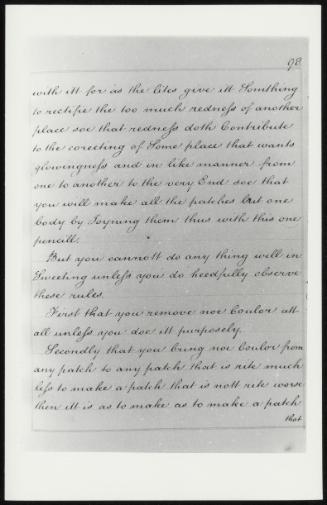 98
with itt for as the lites give itt Somthing
to rectifie the too much redness of another
place soe that redness doth Contribute
to the coreeting of Some place that wants
glowingness and in like manner from
one to another to the very End soe that
you will make all the patches but one
body by Joyning them thus with this one
pencill.
But you cannott do any thing well in
Sweeting unless you do heedfully observe
these rules.
First that you remove noe Coulor att
all unless you doe itt purposely.
Secondly that you bring noe Coulor from
any patch to any patch that is rite much
less to make a patch that is nott rite worse
then itt is as to make as to make a patch
that